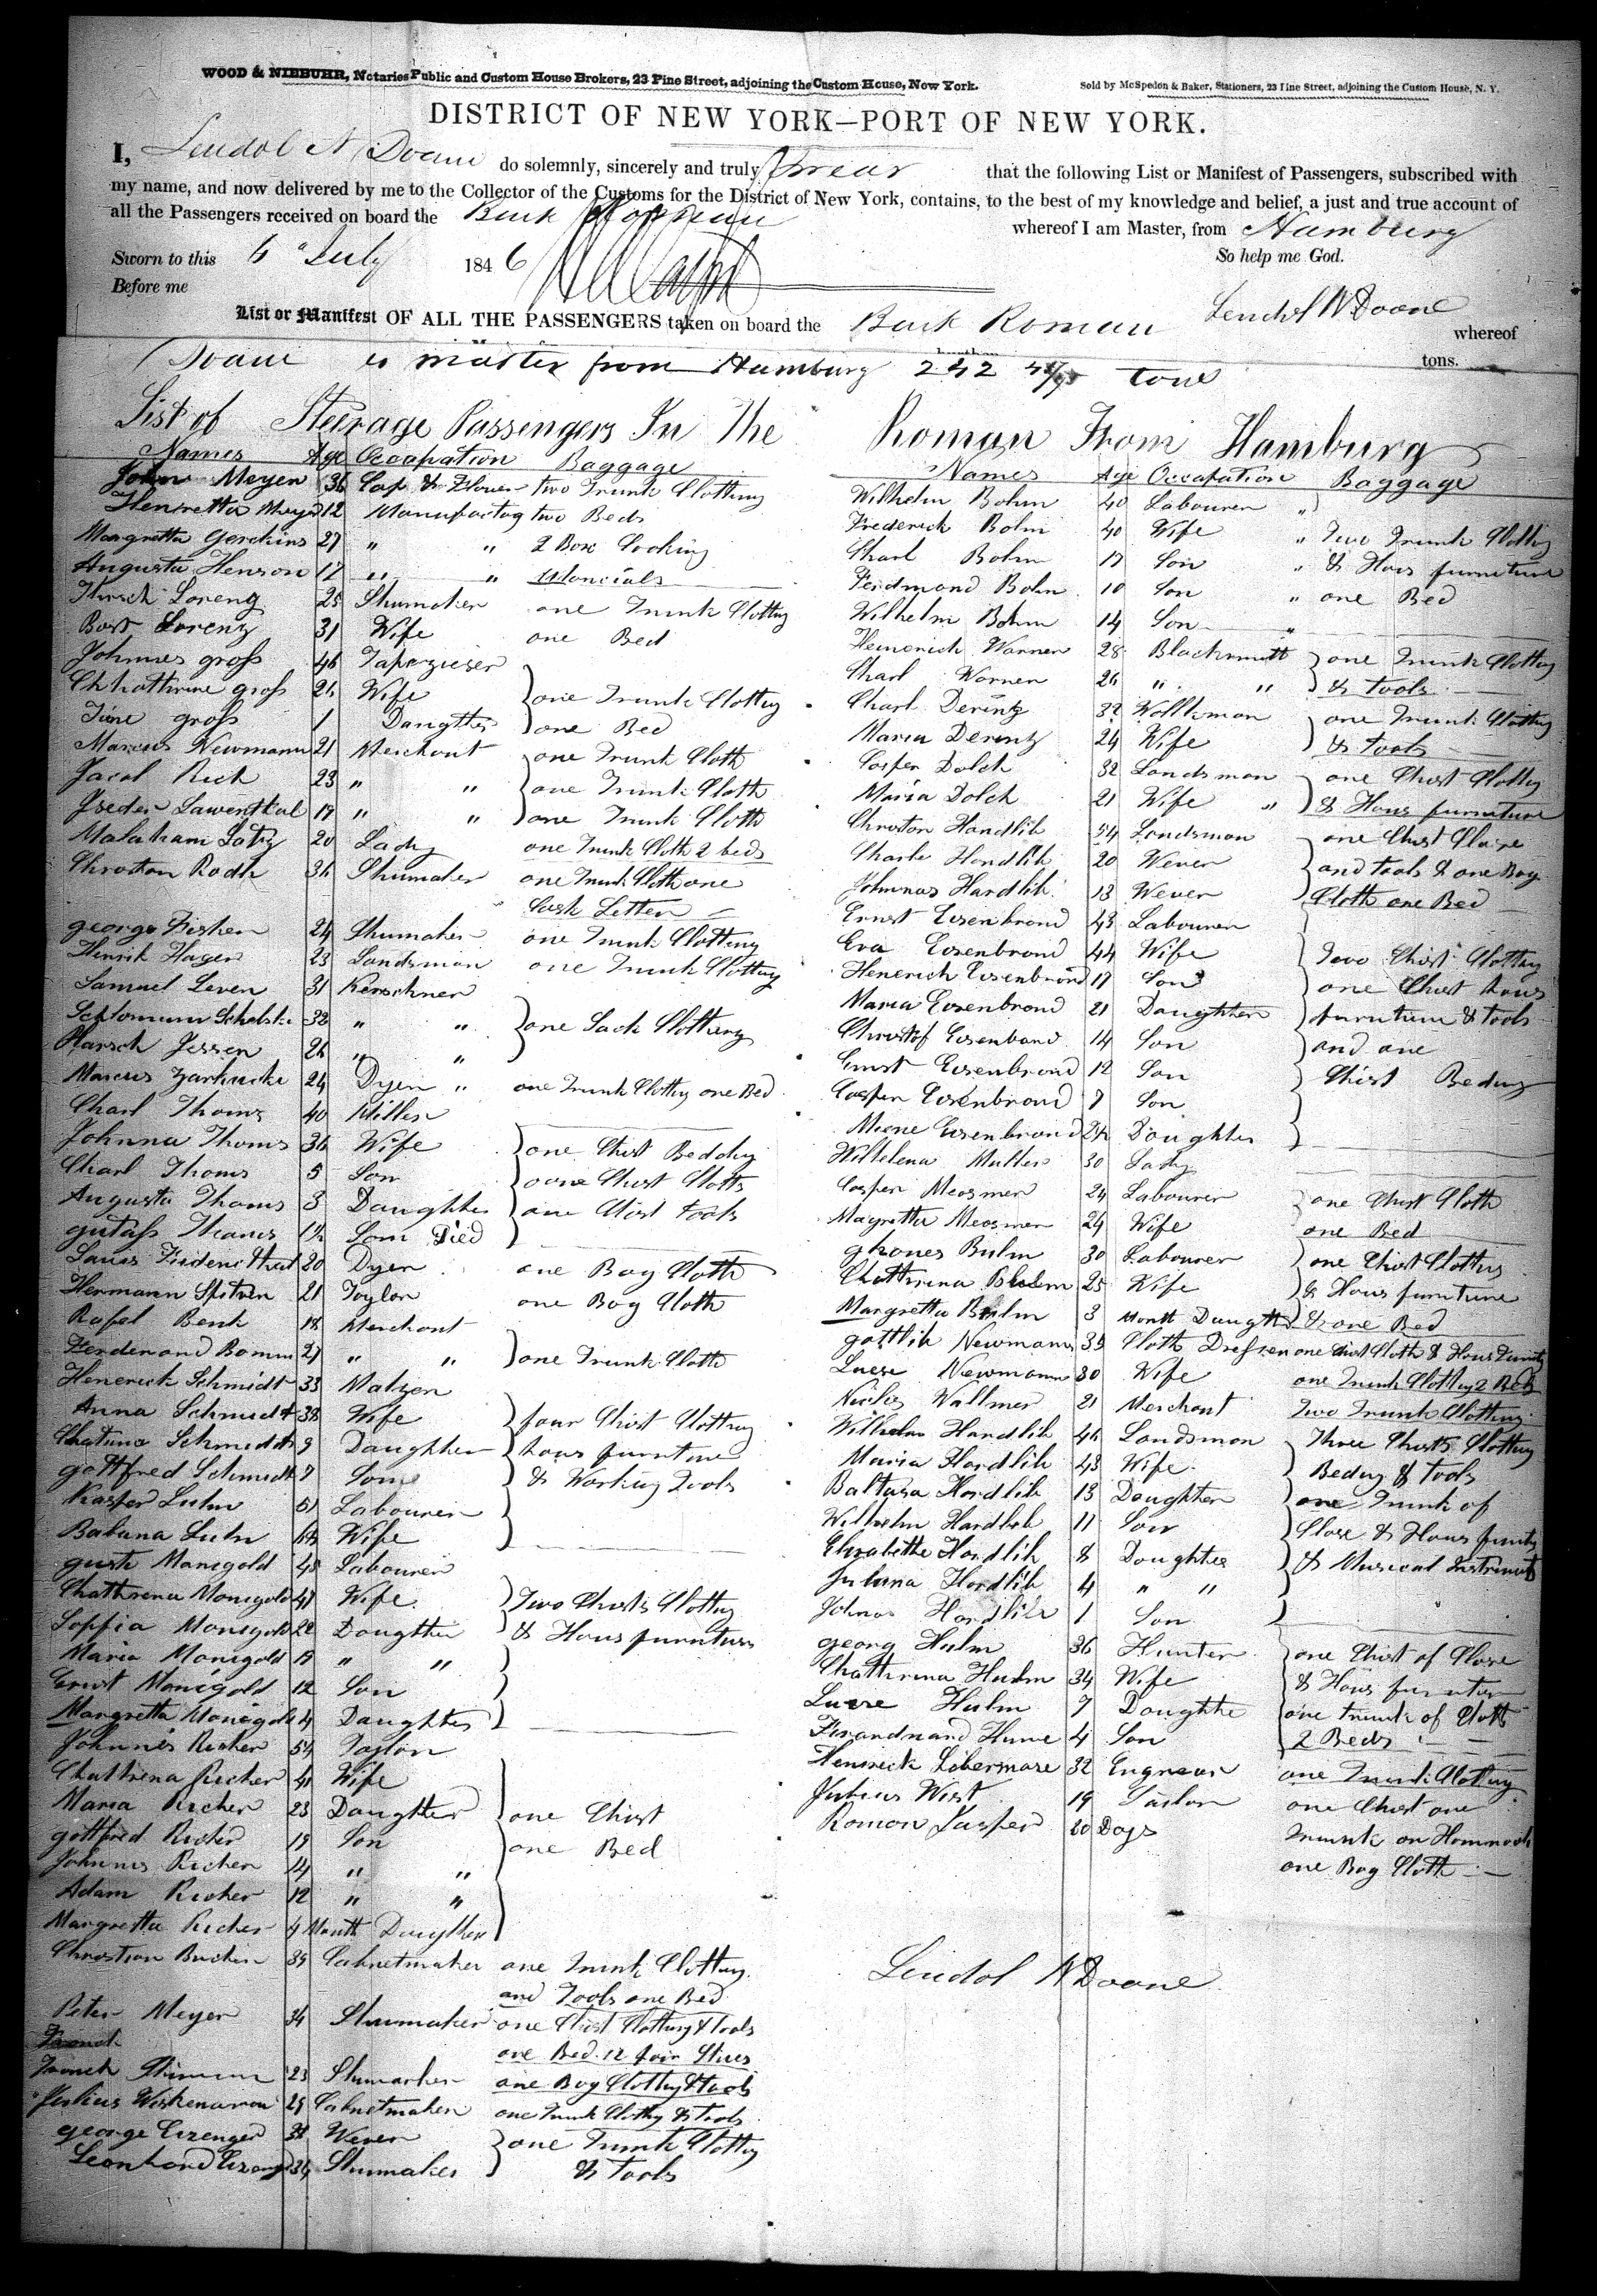 WOOD & NIEBUHR, Notaries Public and Custom House Brokers, 23 Pine Street, adjoining the Custom House, New York.
Sold by McSpedon & Baker, Stationers, 23 Pine Street, adjoining the Custom House, N. Y.
DISTRICT OF NEW YORK—PORT OF NEW YORK.
I, Lendol N Doane do solemnly, sincerely and truly Swear that the following List or Manifest of Passengers, subscribed with
my name, and now delivered by me to the Collector of the Customs for the District of New York, contains, to the best of my knowledge and belief, a just and true account of
all the Passengers received on board the Bark Roman whereof I am Master, from Hamburg
Sworn to this 6 July 1846 So help me God.
Before me
Lendol N Doane
List or Manifest OF ALL THE PASSENGERS taken on board the Bark Roman whereof
Doane is master from Hamburg 242 tons
tons.
List of Steerage Passengers In The Roman From Hamburg
Names Age Occupation Baggage
John Meyer 36 Cap & Flower two Trunk Clothing
Henretta Meyer 12 Manufactog two Beds
Margretta Gerckins 27 " " 2 Box Cooking
Augusta Henson 17 " "
Hirsch Loreng 25 Shumaker one Trunk Clothing
Lorenz 31 Wife one Bed
Johnnes gross 46 Tapezieser
Chhathrine gross 26 Wife one Trunk Clothing
Tine gross 1 Daugther one Bed
Marcus Newmann 21 Merchant one Trunk Cloth
Jacol Rich 23 " " one Trunk Cloth
Lawenthal 19 " " one Trunk Cloth
20 Lady one Trunk Cloth 2 beds
Christon Rodh 36 Shumaker one Trunk Cloth one
Cask Letter
george Fisher 24 Shumaker one Trunk Clothing
Henrik Hagen 23 Landsman one Trunk Clothing
Samuel Leven 31 Kerschner
32 " " one Sack Clothing
Harsch Jessen 26 " "
Marcus 24 Dyer " one Trunk Clothing one Bed
Charl Thoms 40 Miller
Johnna Thoms 36 Wife one Chist Bedding
Charl Thoms 5 Son one Chist Cloths
Augusta Thoms 3 Daughter one Chist tools
Thoms 1½ Son Died
Louis 20 Dyer one Bag Cloth
Hermann Spitzen 21 Taylor one Bag Cloth
Rafel Benk 18 Merchant
Ferdenand Bomm 27 " " one Trunk Cloth
Henereck Schmidt 33 Malzer
Anna Schmidt 38 Wife four Chist Clothing
Chatrina Schmidt 9 Daughter hous furnture
gottfred Schmidt 7 Sone & Working Tools
Kasper Luhn 51 Labourer
Babuna Luhn Wife
gust Manigold 45 Labourer
Chathrena Manigold 47 Wife Two Chists Clothing
Soppia Manigold 22 Daugther & Hous furniture
Maria Manigold " "
Ernst Manigold 12 Son
Margretta Manigold 4 Daughter
Johnnes Richer 54 Taylor
Chathrina Richer 41 Wife
Maria Richer 23 Daughter one Chist
gottfred Richer 19 Son one Bed
Johnnes Richer 14 " "
Adam Richer 12 " "
Margretta Richer 4 Month Daugther
Christian Bucher 39 Cabnetmaker one Trunk Clothing
and Tools one Bed
Peter Meyer 34 Shumaker one Chist Clothing & tools
one Bed 12 pair Shues
Franch
Franch 23 Shumaker one Bag Clothing & tools
Julius 29 Cabnetmaker one Trunk Clothing & tools
george Erzenger 31 Wever one Trunk Clothing
Leonhard 34 Shumaker & Tools
Names Age Occupation Baggage
Wilhelm Bohm 40 Labourer "
Frederick Bohm 40 Wife " Two Trunk Clothing
Charl Bohm 17 Son " & Hous furniture
Ferdmand Bohm 10 Son " one Bed
Wilhelm Bohm 14 Son "
Heinerich Warner 28 Blacksmitt one Trunk Clothing
Charl Warner 26 " " & tools
Charl Derintz 32 one Trunk Clothing
Maria Derintz 24 Wife & tools
Casper Dolch 32 Landsman one Chist Clothing
Maria Dolch 21 Wife " & Hous furniture
Christon Handlib 54 Landsman one Chist Close
Charle Handlib 20 Wever and tools & one Bag
Johnnas Hardlib 13 Wever Cloth one Bed
Ernst Eosenbrand 43 Labourer
Eva Eosenbrand 44 Wife Two Chist Clothing
Henerich Eosenbrand 17 Son one Chist hous
Maria Eosenbrand 21 Daughter furniture & tools
Christof Eosenband 14 Son and one
Ernst Eosenbrand 12 Son Chist Beding
Casper Eosenbrand 7 Son
Miene Eosenbrand Doughter
Wilhelena Muller 30 Lady
Casper Meosmer 24 Labourer one Chist Cloth
Magretta Meosmer 24 Wife one Bed
Bulm 30 Labourer one Chist Clothes
Chathrina Bulm 25 Wife & Hous furniture
Margretta Bulm 3 Month Daugther & one Bed
gottlib Newmann 35 Cloth Dresser one Chist Cloth & Hous
Luese Newmann 30 Wife one Trunk Clothing 2 Beds
Wallmer 21 Merchant Two Trunk Clothing
Wilhelm Handlib 46 Landsman Three Chists Clothing
Maria Hardlib 43 Wife Beding & tools
Baltasa Hardlib 13 Doughter one Trunk of
Wilhelm Hardlib 11 Son Close & Hous
Elizabethe Hardlib 8 Doughter & Musical Instrument
Juliana Hardlib 4 " "
Johnas Hardlib 1 Son
georg Hulm 36 Hunter one Chist of Close
Chathrina Hulm 34 Wife & Hous furniture
Luese Hulm 7 Doughter one trunk of Cloth
Hume 4 Son 2 Beds
Henereck Lobermare 32 Engraver one Trunk Clothing
Julius Wist 19 Tailor one Chist one
Roman Jasper 20 Days Trunk on Hommock
one Bag Cloth
Lendol N Doane